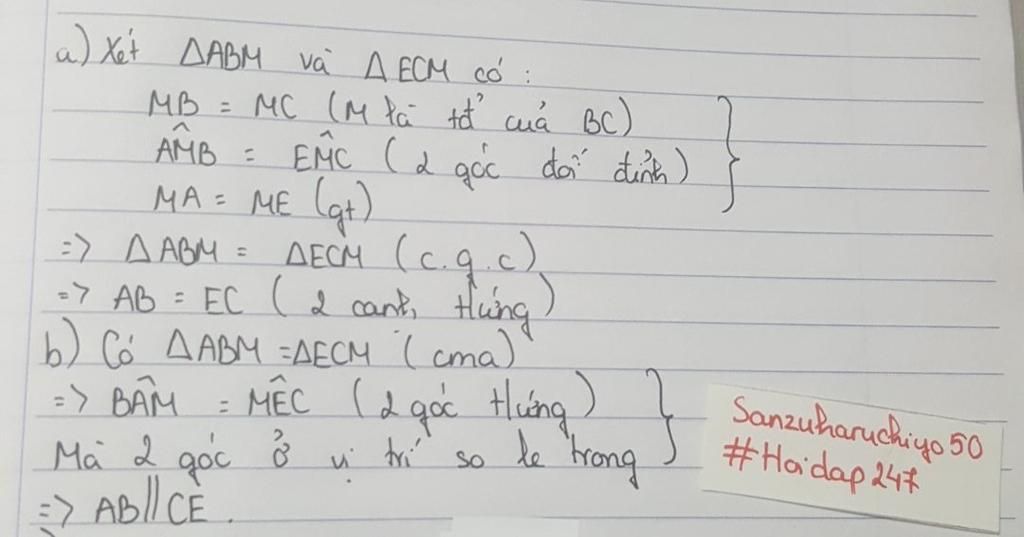 a) Xét ΔABM và ΔECM có :
MB = MC (M là tđ của BC)
AM̂B = EM̂C ( 2 góc đối đỉnh )
MA = ME (gt)
=> ΔABM = ΔECM (c.g.c)
=> AB = EC ( 2 cạnh tứng )
b) Có ΔABM = ΔECM (cma)
=> BÂM = MÊC ( 2 góc tứng )
Mà 2 góc ở vị trí so le trong
=> AB//CE.
Sanzuharuchiyo50
#Hoidap247